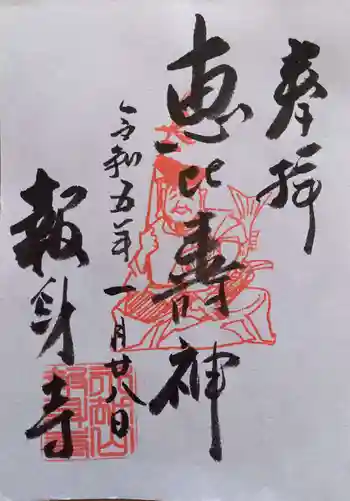 奉拝
恵比壽神
令和五年一月廿八日
報身寺